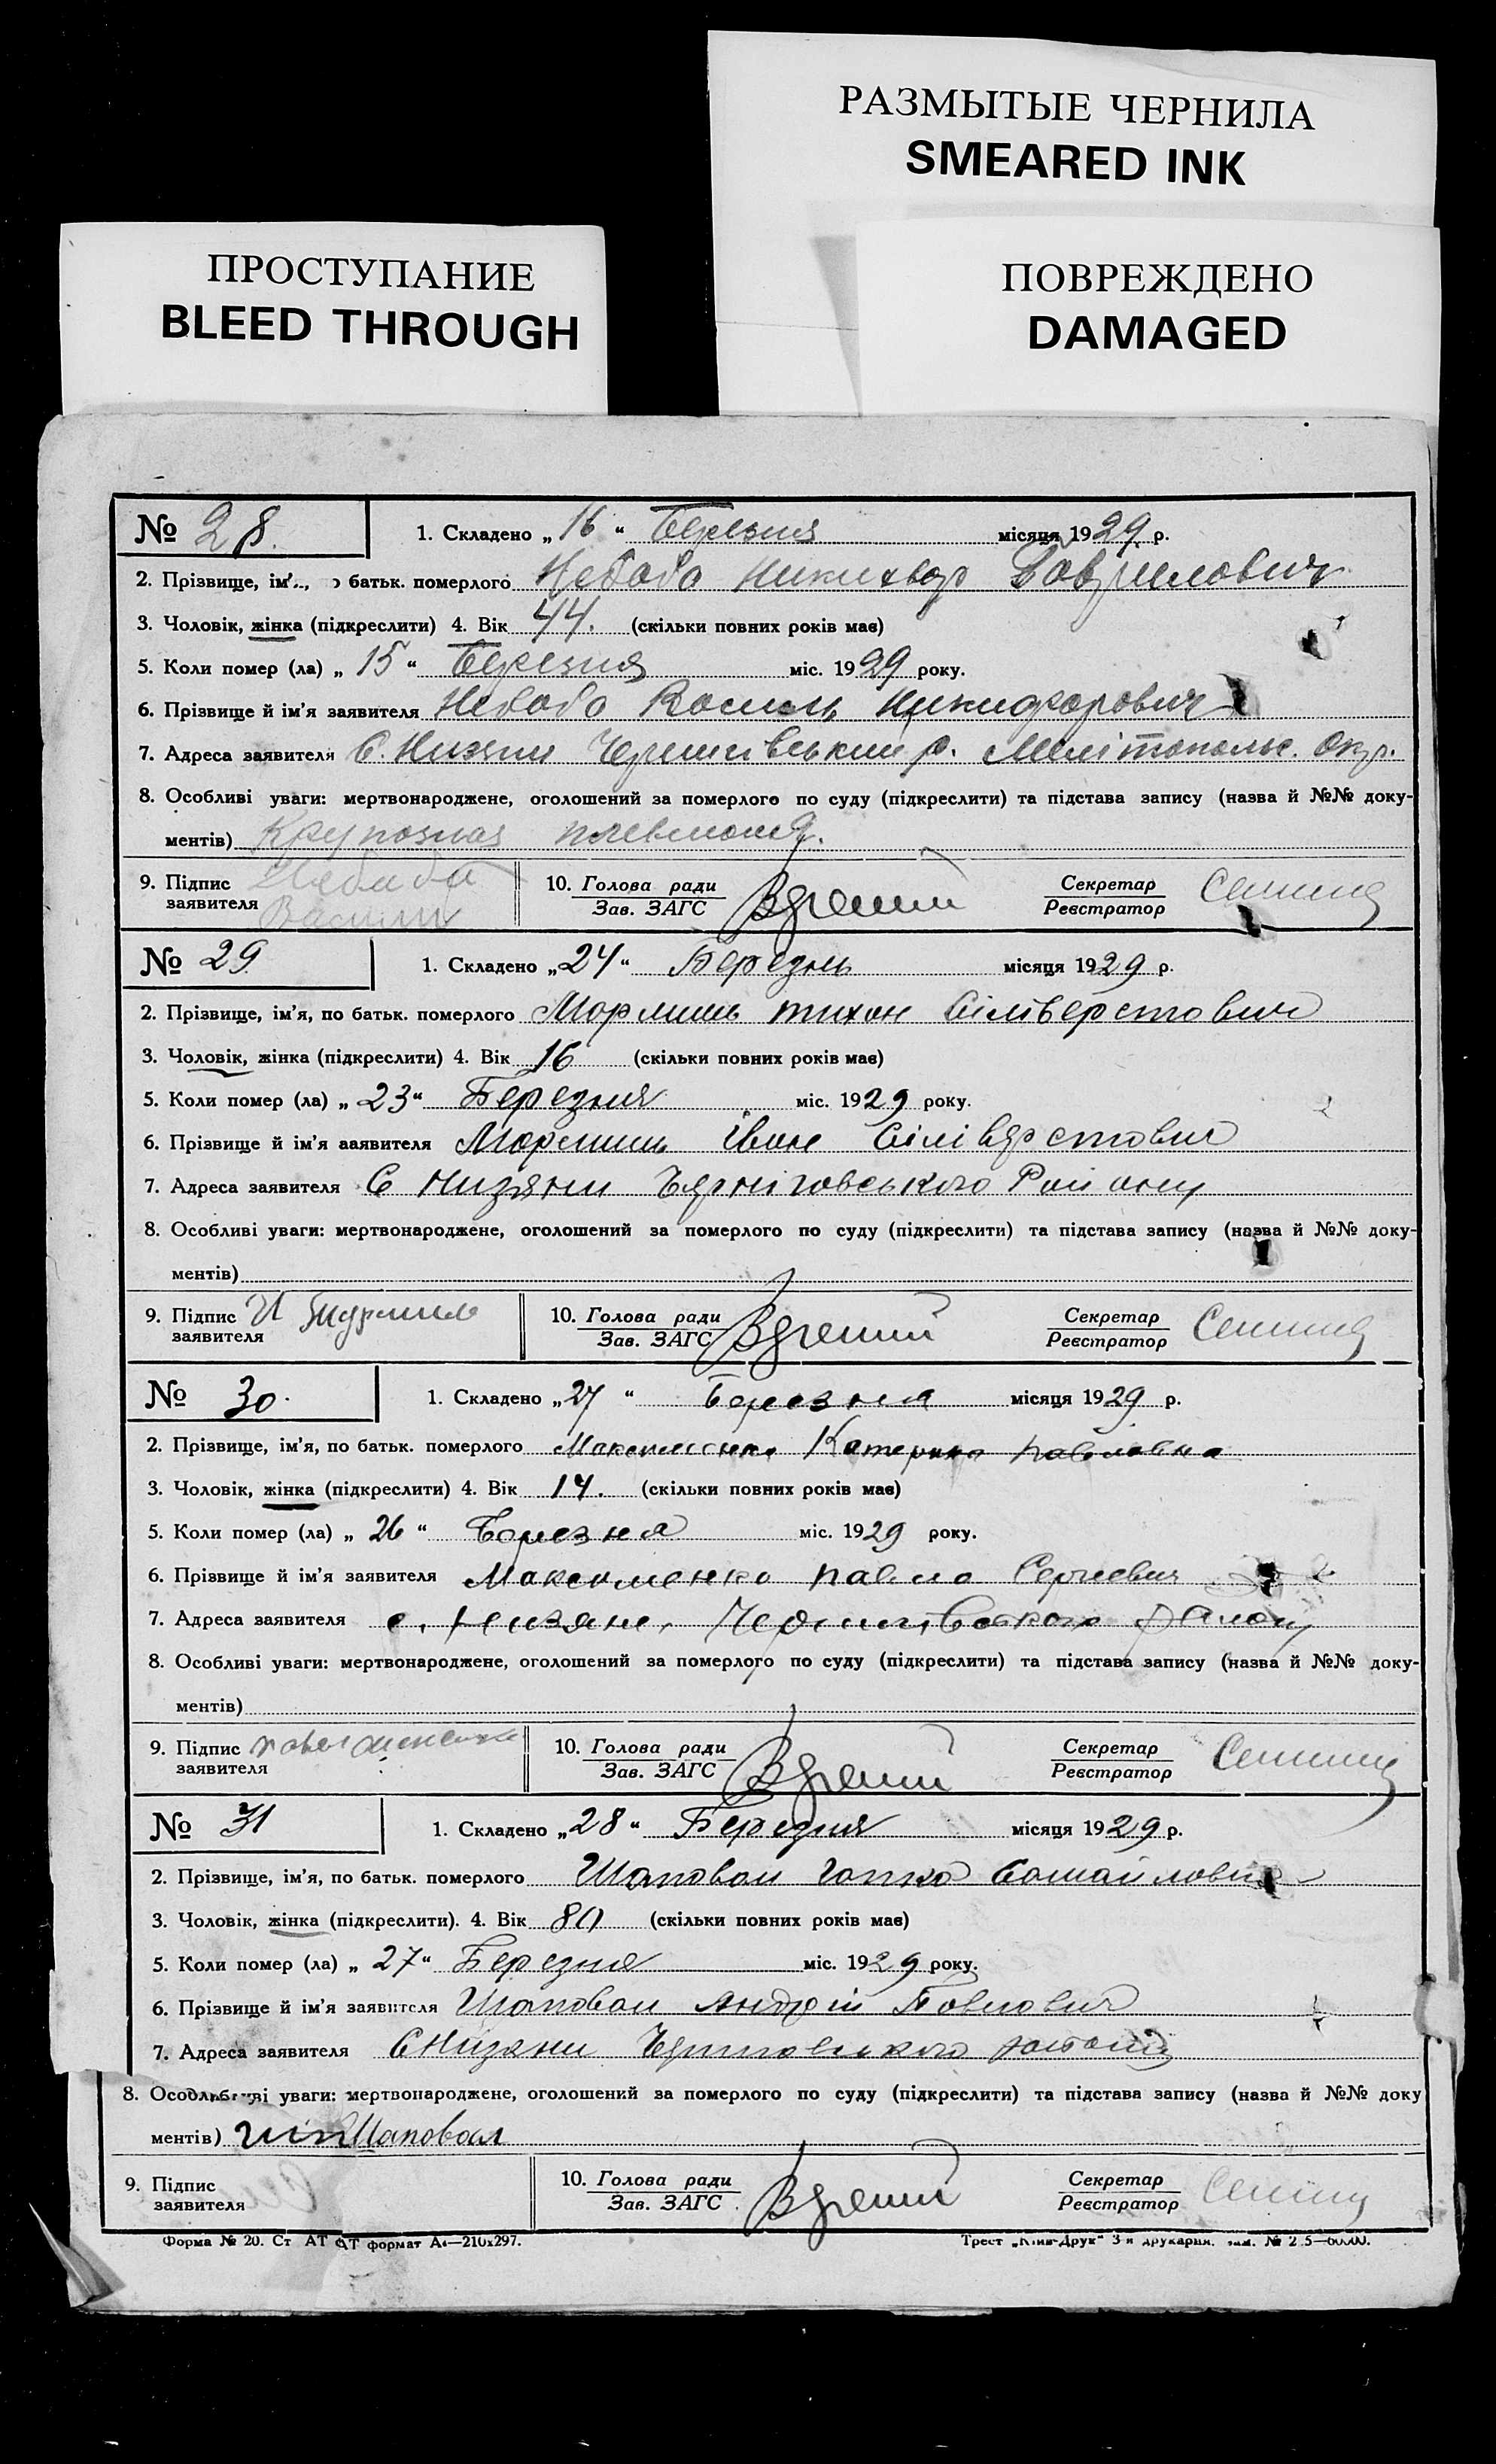 РАЗМЫТЫЕ ЧЕРНИЛА
SMEARED INK
ПРОСТУПАНИЕ
BLEED THROUGH
ПОВРЕЖДЕНО
DAMAGED
№ 28. 1. Складено „ 16 “ Березня місяця 1929 р.
2. Прізвище, ім'., о батьк. померлого Небаба Никихвор Гаврилович
3. Чоловік, жінка (підкреслити) 4. Вік 44. (скільки повних років має)
5. Коли помер (ла) „ 15 “ Березня міс. 1929 року.
6. Прізвище й ім'я заявителя Небаба Василь Никифорович
7. Адреса заявителя С. Низяни р. Мелітопольс. Окр.
8. Особливі уваги: мертвонароджене, оголошений за померлого по суду (підкреслити) та підстава запису (назва й №№ доку-
ментів) Крупозная плевмония.
9. Підпис заявителя Небаба Василь 10. Голова ради Зав. ЗАГС Секретар Реєстратор
№ 29. 1. Складено „24“ Березнь місяця 1929 р.
2. Прізвище, ім'я, по батьк. померлого тихон Сіліверстович
3. Чоловік, жінка (підкреслити) 4. Вік 16 (скільки повних років має)
5. Коли помер (ла) „ 23“ Березня міс. 1929 року.
6. Прізвище й ім'я заявителя Іван Сіліверстович
7. Адреса заявителя С Низяни Черніговського Району
8. Особливі уваги: мертвонароджене, оголошений за померлого по суду (підкреслити) та підстава запису (назва й №№ доку-
ментів)
9. Підпис заявителя И 10. Голова ради Зав. ЗАГС Секретар Реєстратор
№ 30. 1. Складено „27 “ Березня місяця 1929 р.
2. Прізвище, ім'я, по батьк. померлого Максименко Катерина Павловна
3. Чоловік, жінка (підкреслити) 4. Вік 14. (скільки повних років має)
5. Коли помер (ла) „ 26 “ Березня міс. 1929 року.
6. Прізвище й ім'я заявителя Максименко Павло Сергиевич
7. Адреса заявителя с. Низяне, району
8. Особливі уваги: мертвонароджене, оголошений за померлого по суду (підкреслити) та підстава запису (назва й №№ доку-
ментів)
9. Підпис заявителя 10. Голова ради Зав. ЗАГС Секретар Реєстратор
№ 31 1. Складено „28“ Березня місяця 1929 р.
2. Прізвище, ім'я, по батьк. померлого Шаповал
3. Чоловік, жінка (підкреслити). 4. Вік 80 (скільки повних років має)
5. Коли помер (ла) „ 27“ Березня міс. 1929 року.
6. Прізвище й ім'я заявителя Шаповал Андрій Павлович
7. Адреса заявителя С Низяни
8. Особливі уваги: мертвонароджене, оголошений за померлого по суду (підкреслити) та підстава запису (назва й №№ доку
ментів) Шаповал
9. Підпис заявителя 10. Голова ради Зав. ЗАГС Секретар Реєстратор
Форма № 20. Ст АТ формат А4—210x297. Трест „Київ-Друк“ 3-я друкарня.